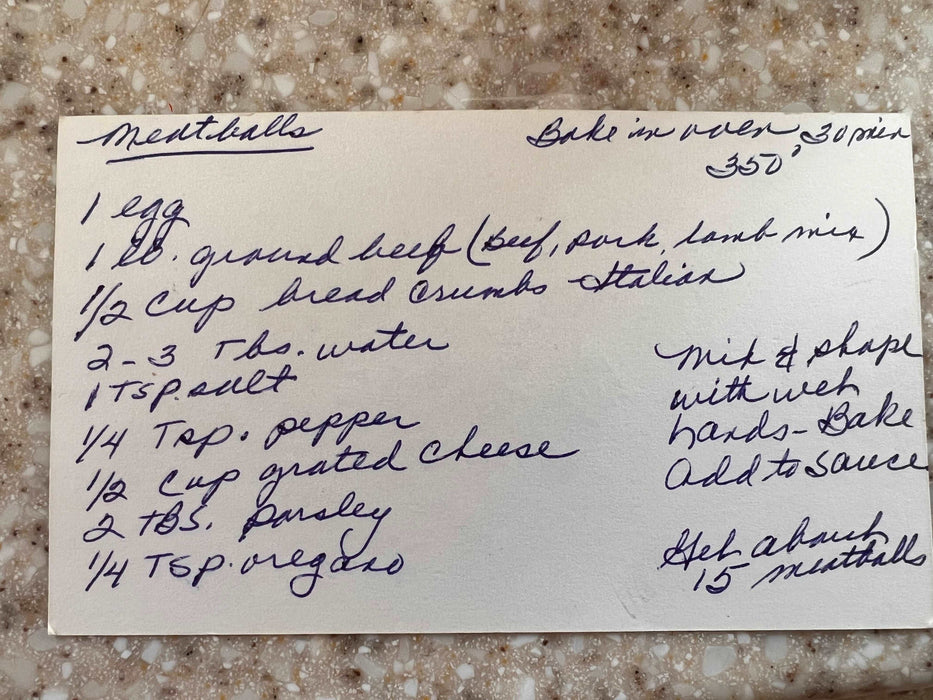 Meatballs
Bake in oven 30 min
350°
1 egg
1 lb. ground beef (Beef, pork, lamb mix)
1/2 cup bread crumbs Italian
2-3 Tbs. water
1 Tsp. salt
1/4 Tsp. pepper
1/2 cup grated cheese
2 TBS. parsley
1/4 Tsp. oregano
Mix & shape
with wet
hands - Bake
Add to sauce
Get about
15 meatballs